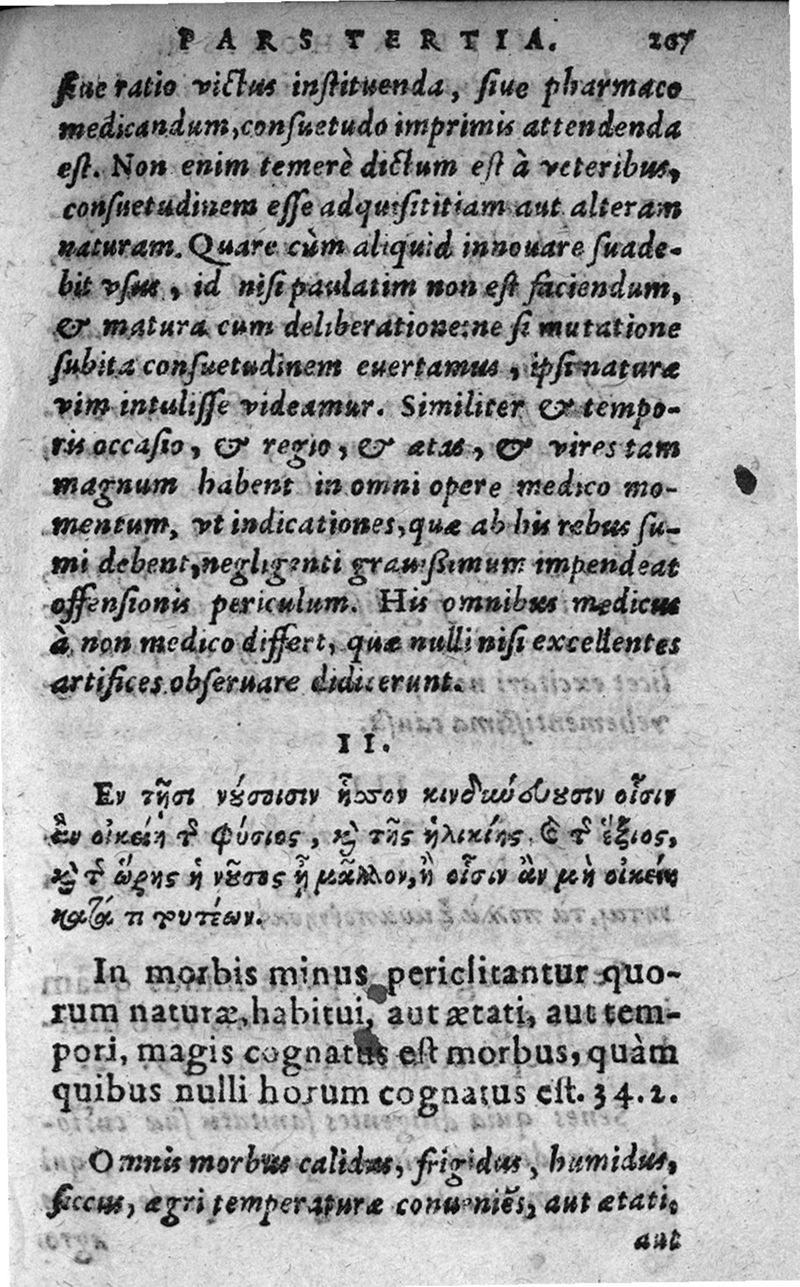 PARS TERTIA. 207
siue ratio victus instituenda, siue pharmaco
medicandum, consuetudo imprimis attendenda
est. Non enim temerè dictum est à veteribus,
consuetudinem esse adquisititiam aut alteram
naturam. Quare cùm aliquid innouare suade-
bit vsus, id nisi paulatim non est faciendum,
& matura cum deliberatione: ne si mutatione
subita consuetudinem euertamus, ipsi naturæ
vim intulisse videamur. Similiter & tempo-
ris occasio, & regio, & ætas, & vires tam
magnum habent in omni opere medico mo-
mentum, vt indicationes, quæ ab his rebus su-
mi debent, negligenti grauissimum impendeat
offensionis periculum. His omnibus medicus
à non medico differt, quæ nulli nisi excellentes
artifices obseruare didicerunt.
II.
Εν τῇσι νούσοισιν ἧσσον κινδυνεύουσιν οἷσιν
ἂν οἰκείη τῆς φύσιος, καὶ τῆς ἡλικίης, καὶ τῆς ἕξιος,
καὶ τῆς ὥρης ἡ νοῦσος ᾖ μᾶλλον, ἢ οἷσιν ἂν μὴ οἰκείη
κατά τι τουτέων.
In morbis minus periclitantur quo-
rum naturæ, habitui, aut ætati, aut tem-
pori, magis cognatus est morbus, quàm
quibus nulli horum cognatus est. 34. 2.
Omnis morbus calidus, frigidus, humidus,
siccus, ægri temperaturæ conueniēs, aut ætati,
aut